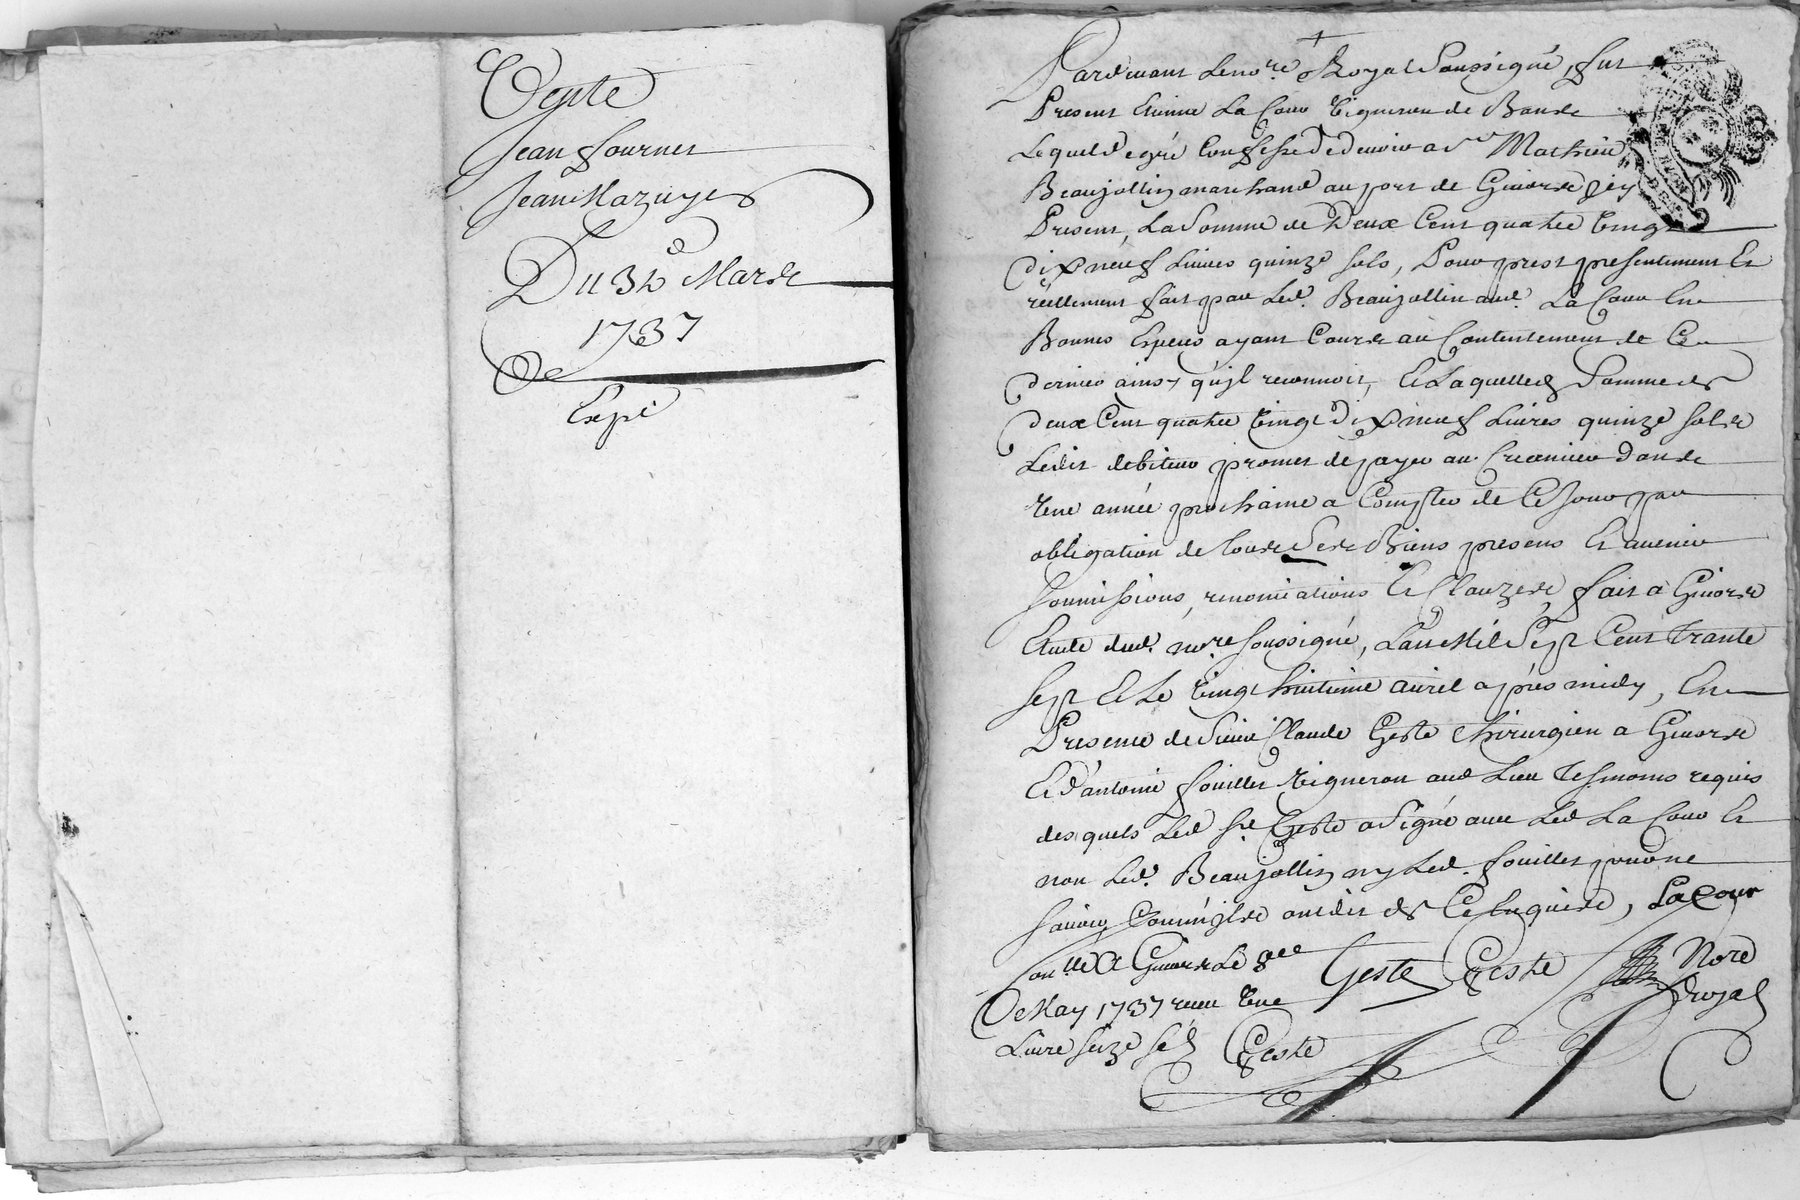 Vente
Jean fournet
Jean Mazuyer
Du 31e Mars
1737
Expé
Pardevant le no.re Royal soussigné, fut
Present Etienne La Cour Vigneron de Bans
Lequel degré Confesse de devoir a sr Mathieu
Beaujollin marchand au port de Givors jcy
Present, La Somme de Deux Cent quatre Vingt
dix neuf Livres quinze sols, Pour prest presentement Et
réellement fait par Led. Beaujollin aud. La Cour En
Bonnes Especes ayant Cours au Contentement de Ce
dernier ainsy qu'jl reconnoit, Et Laquelle Somme de
deux Cent quatre Vingt dix neuf Livres quinze sols
Ledit debiteur promet de payer au Creancier dans
Une année prochaine a Compter de Ce Jour par
obligation de tous Ses Biens presens Et avenir
soumissions, renonciations Et Clauzes, fait a Givors
Etude dud. no.re soussigné, L'an Mil Sept Cent Trante
sept Et Le Vingt huitieme avril après midy, En
Presence de Sieur Claude Geste Chirurgien a Givors
Et d'antoine fouillet Vigneron aud Lieu Tesmoins requis
desquels Led sr. Geste a Signé avec Led La Cour Et
non Led. Beaujollin ny Led. fouillet pour ne
savoir Comm'jls ont dit de Ce Enquis, La Cour
Con.lle A Givors Le 8e Geste Geste Nore
De May 1737 receu Une Royal
Livre seize s. Geste